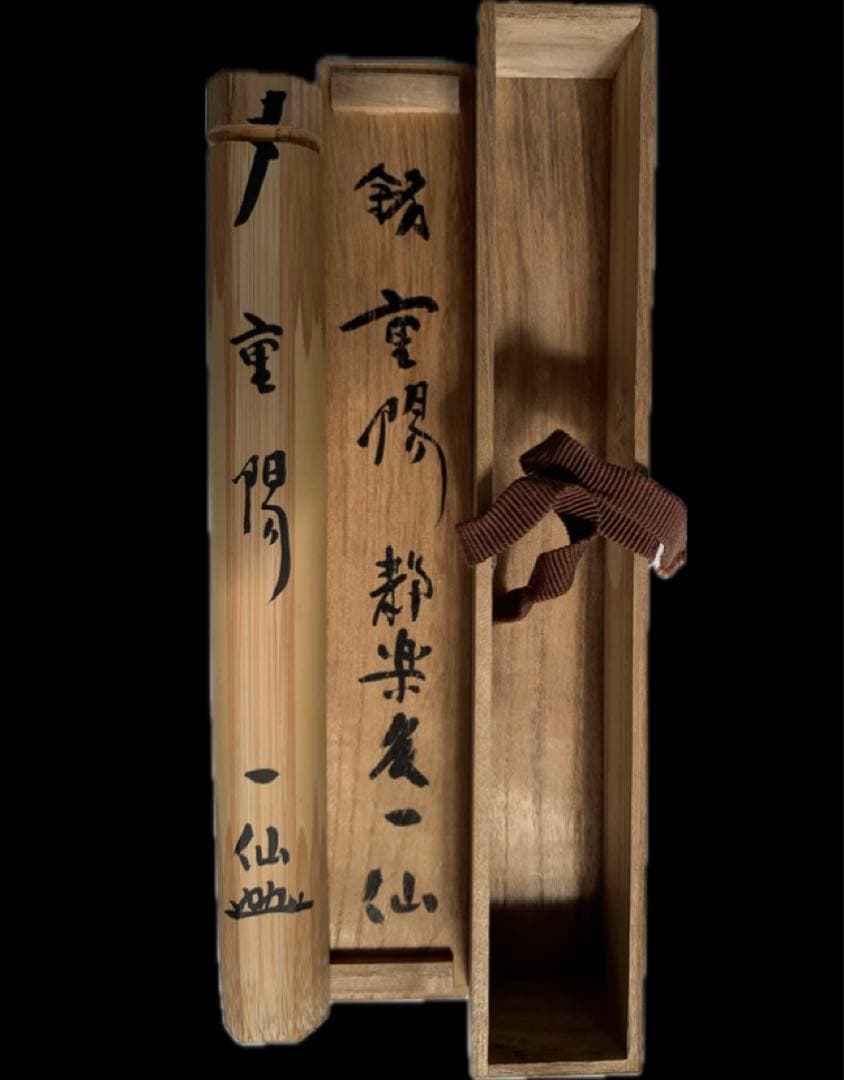 銘 重陽 静楽庵一仙
重陽 一仙